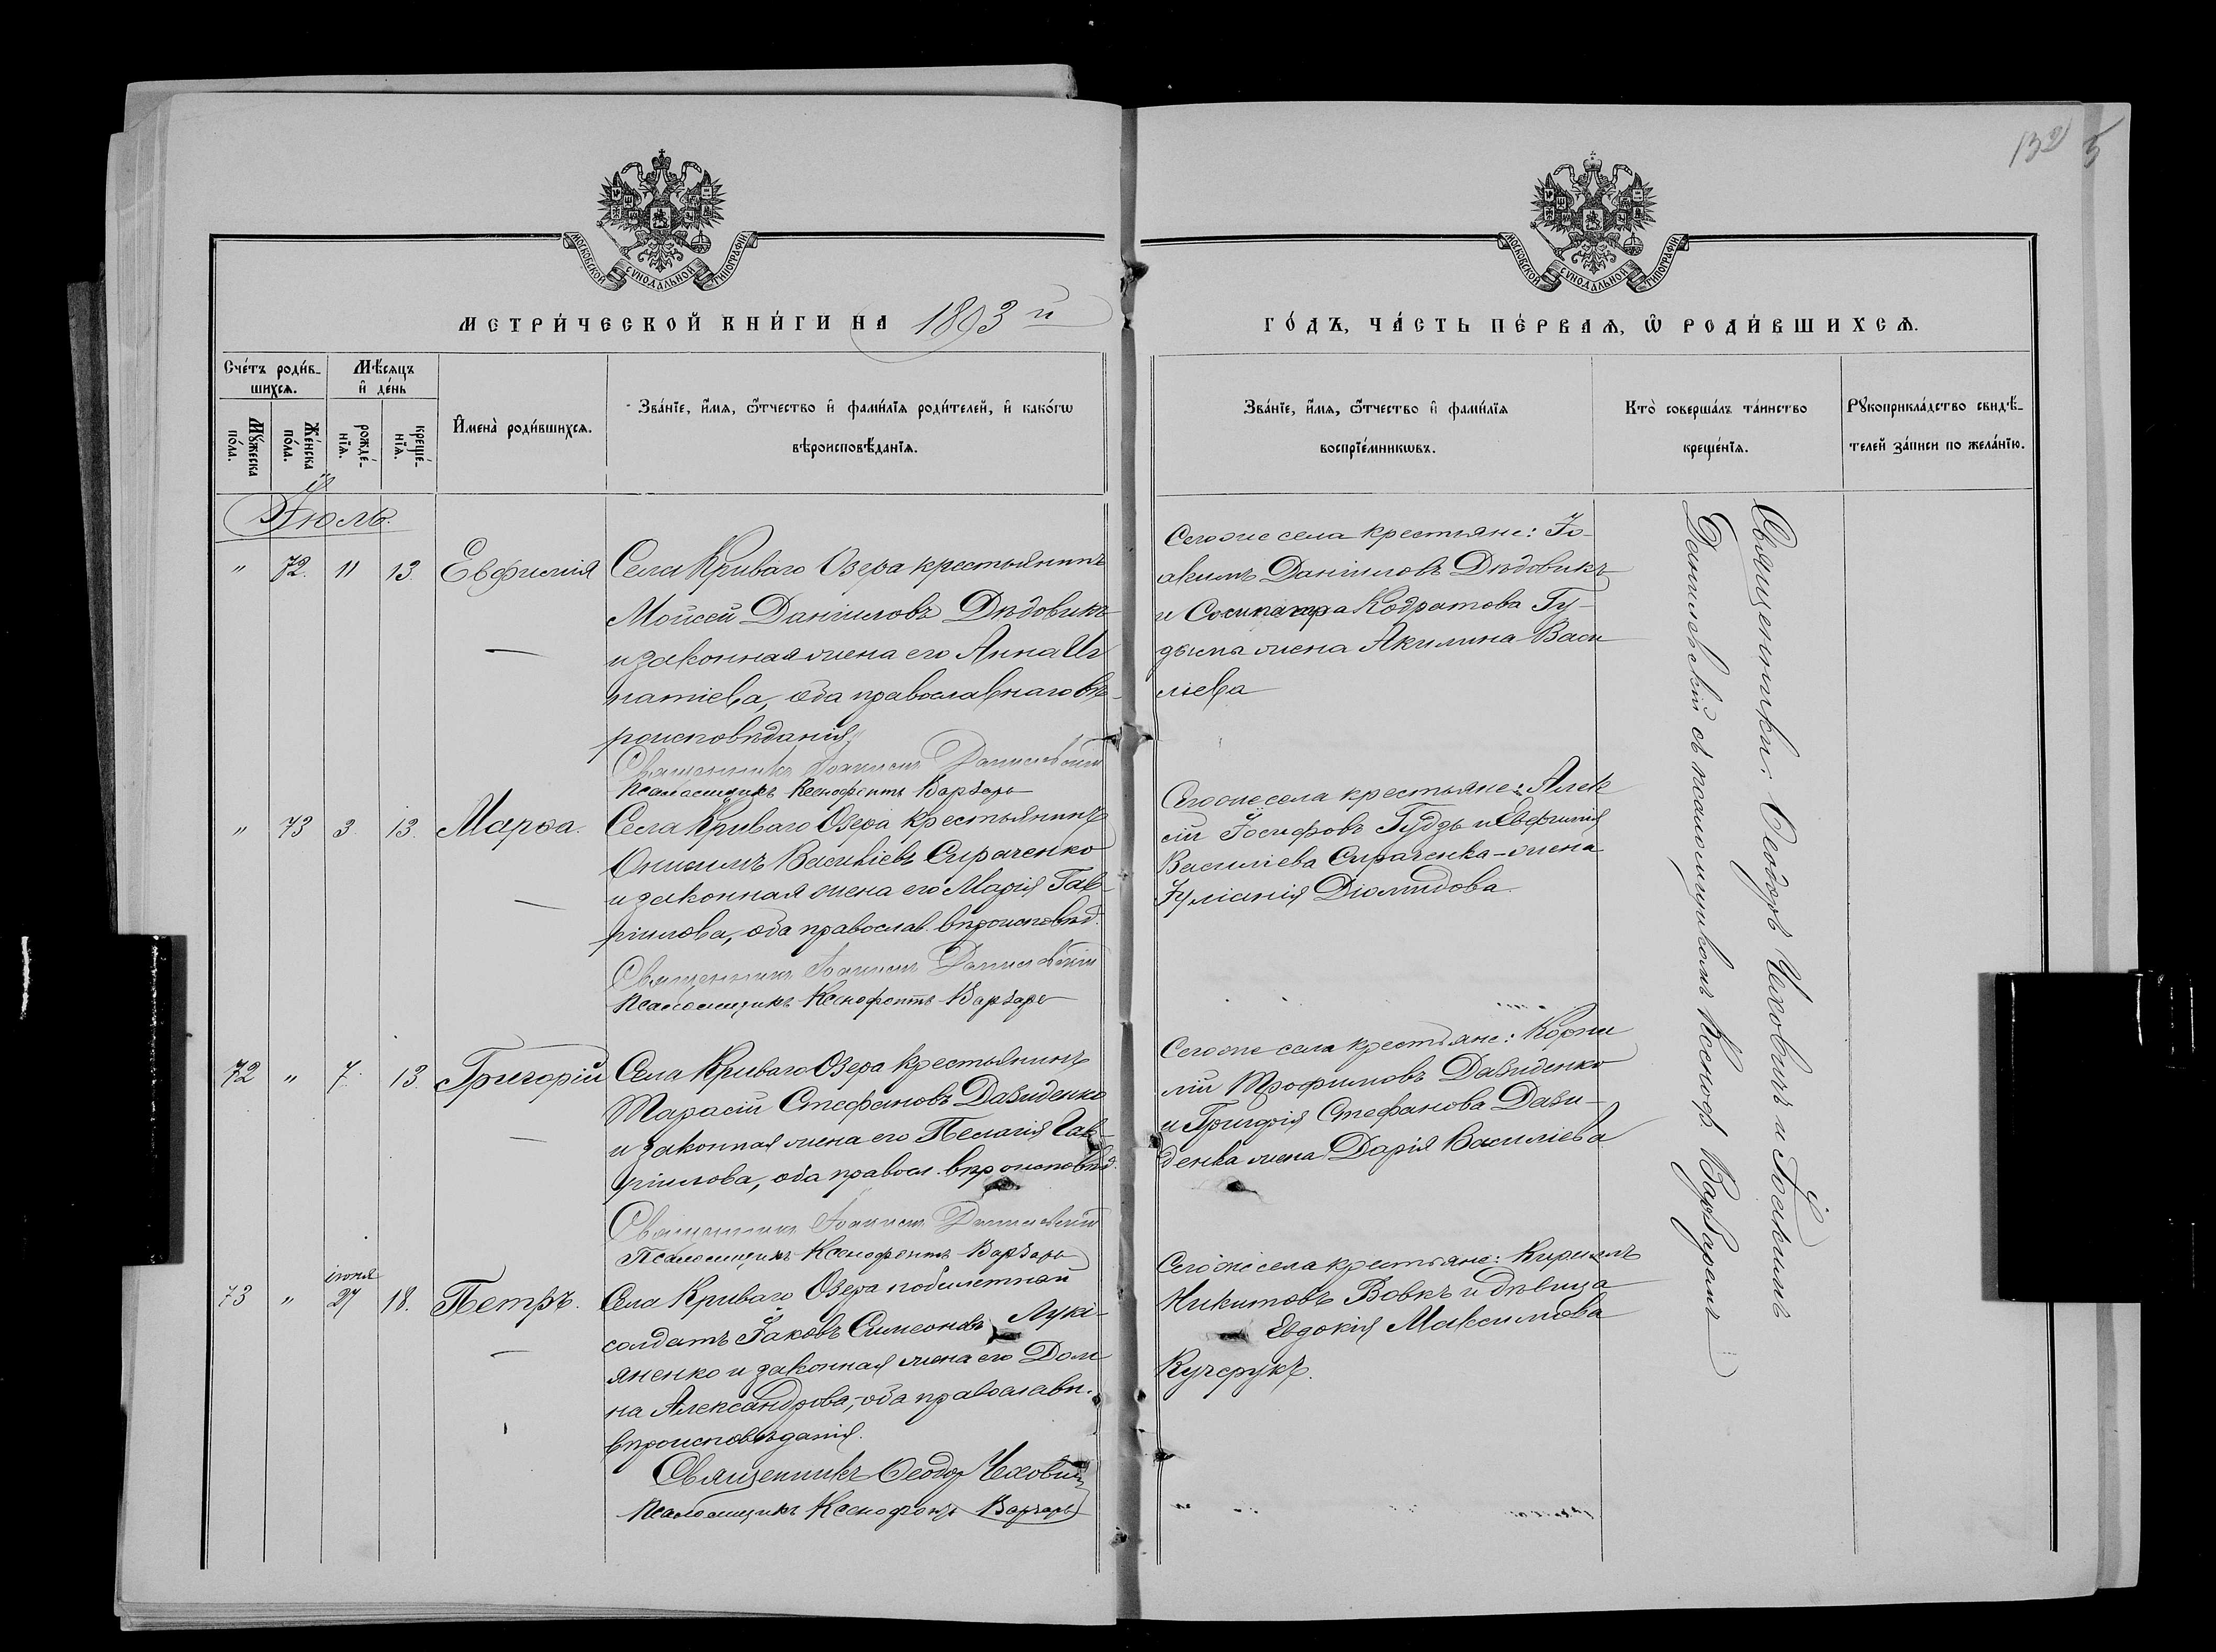 132 5
МОСКОВСКОЙ СѴНОДАЛЬНОЙ ТИПОГРАФІИ
МОСКОВСКОЙ СѴНОДАЛЬНОЙ ТИПОГРАФІИ
МЕТРИ́ЧЕСКОЙ КНИ́ГИ НА 1893 й
ГО́ДЪ, ЧА́СТЬ ПЕ́РВАѦ, Ѡ РОДИ́ВШИХСѦ.
Сче́тъ роди́в-
шихсѧ.
Мꙋ́жеска по́ла.
Же́нска по́ла.
Мѣ́сѧцъ
и҆ де́нь
рожде́-
нїѧ.
креще́-
нїѧ.
И҆мена̀ роди́вшихсѧ.
Зва́нїе, и҆́мѧ, ѻ҆́тчество и҆ фами́лїѧ роди́телей, и҆ како́гѡ
вѣроисповѣ́данїѧ.
Зва́нїе, и҆́мѧ, ѻ҆́тчество и҆ фами́лїѧ
воспрїе́мникѡвъ.
Кто̀ соверша́лъ та́инство
креще́нїѧ.
Рꙋкоприкла́дство свидѣ́-
телей за́писи по жела́нїю.
Іюль.
" 72. 11 13 Евфимія
Села Криваго Озера крестьянинъ
Моисей Даніиловъ Дѣдовикъ
и законная жена его Анна Иг
натіева, оба православнаго вѣ-
роисповѣданія.
Священникъ Іоаннъ Данилевскій
Псаломщикъ Ксенофонтъ Варзарь
Сегоже села крестьяне: Іо-
акимъ Даніиловъ Дѣдовикъ
и Сосипатра Кодратова Гу-
дыма жена Акилина Васи
ліева
" 73 3. 13. Марѳа.
Села Криваго Озера крестьянинъ
Онисимъ Василіевъ Сираченко
и законная жена его Марія Гав-
ріилова, оба православ. вѣроисповѣд.
Священникъ Іоаннъ Данилевскій
Псаломщикъ Ксенофонтъ Варзарь
Сегоже села крестьяне: Алек
сій Іосифовъ Гудзь и Евфимія
Василіева Сираченка-жена
Іуліанія Діомидова
72 " 7. 13. Григорій
Села Криваго Озера крестьянинъ
Тарасій Стефановъ Давиденко
и законная жена его Пелагія Гав-
ріилова, оба правосл. вѣроисповѣд.
Священникъ Іоаннъ Данилевскій
Псаломщикъ Ксенофонтъ Варзарь
Сегоже села крестьяне: Корни
лій Трофимовъ Давиденко
и Григорія Стефанова Дави-
денка жена Дарія Василіева
73 " іюня 27 18. Петръ.
Села Криваго Озера побилетный
солдатъ Іаковъ Симеоновъ Лукі-
яненко и законная жена его Дом
на Александрова, оба православн.
вѣроисповѣданія.
Священникъ Ѳеодоръ Чеховичъ
Псаломщикъ Ксенофонтъ Варзарь
Сегоже села крестьяне: Кириллъ
Никитовъ Вовкъ и дѣвица
Евдокія Максимова
Кучерукъ.
Священники: Ѳеодоръ Чеховичъ и Іоаннъ
Данилевскій съ псаломщикомъ Ксеноф. Варзаремъ